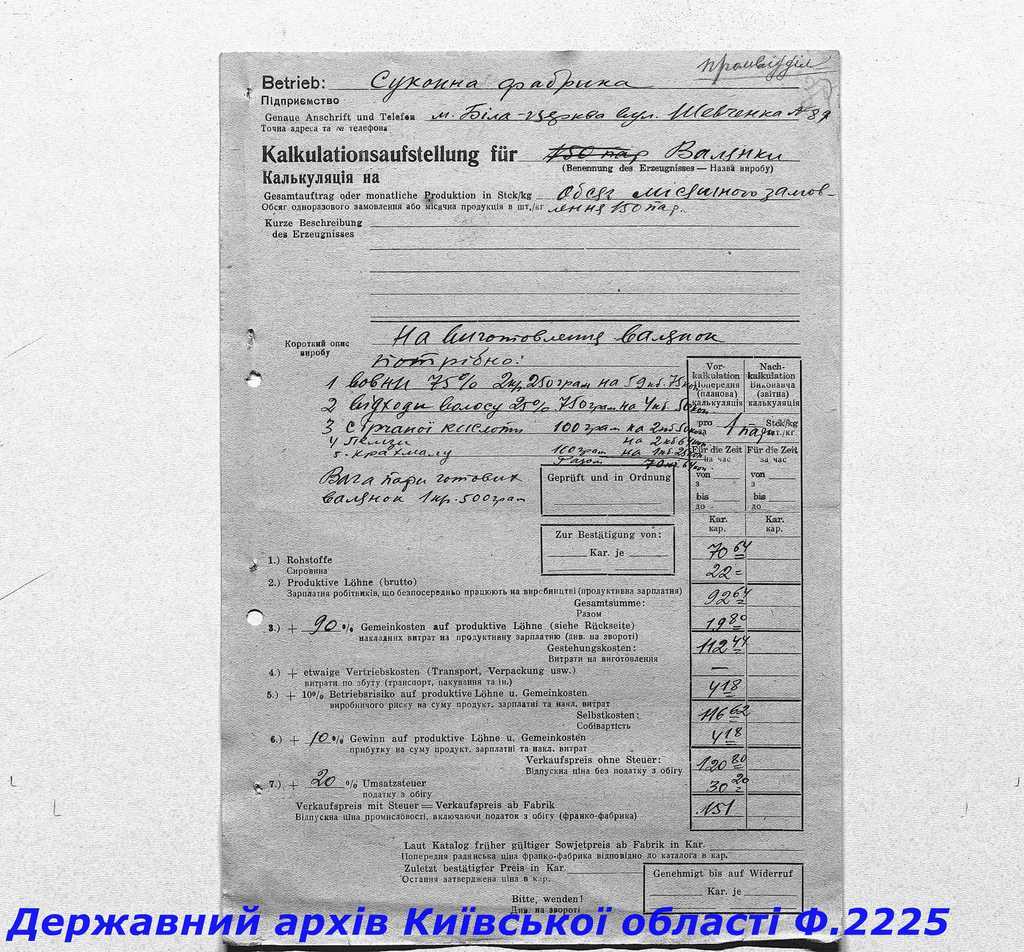 промвідділ
Betrieb: Суконна фабрика
Підприємство
Genaue Anschrift und Telefon м. Біла-церква вул. Шевченка № 89
Точна адреса та № телефона
Kalkulationsaufstellung für 150 пар Валянки
(Benennung des Erzeugnisses — Назва виробу)
Калькуляція на
Gesamtauftrag oder monatliche Produktion in Stck/kg Обсяг місячного замов
Обсяг одноразового замовлення або місячна продукція в шт./кг лення 150 пар.
Kurze Beschreibung
des Erzeugnisses
Короткий опис
виробу
На виготовлення валянок
потрібно:
1 вовни 75% 2кг.250грам на 59 кб. 75 коп.
2 відходи волосу 25% 750грам на 4 кб. 50 коп.
3 сірчаної кислоти 100 грам на 2 кб 50 коп
4 на 2 кб 64 коп.
5. крахмалу 100 грам на 1 кб 25 коп.
Разом 70 кб. 64 коп.
Вага пари готових
валянок 1 кг. 500 грам
Vor-kalkulation Nach-kalkulation
Попередня (планова) калькуляція Виконавча (звітна) калькуляція
pro 1 пар Stck/kg
шт./кг.
Für die Zeit Für die Zeit
на час за час
von von
з з
bis bis
до до
Kar. Kar.
кар. кар.
Geprüft und in Ordnung
Zur Bestätigung von:
Kar. je
1.) Rohstoffe 70 64
Сировина
2.) Produktive Löhne (brutto) 22 =
Зарплатня робітників, що безпосередньо працюють на виробництві (продуктивна зарплатня)
Gesamtsumme: 92 64
Разом
3.) + 90 % Gemeinkosten auf produktive Löhne (siehe Rückseite) 19 80
накладних витрат на продуктивну зарплатню (див. на звороті)
Gestehungskosten: 112 44
Витрати на виготовлення
4.) + etwaige Vertriebskosten (Transport, Verpackung usw.) —
витрати по збуту (транспорт, пакування та ін.)
5.) + 10% Betriebsrisiko auf produktive Löhne u. Gemeinkosten 4 18
виробничого риску на суму продукт. зарплатні та накл. витрат
Selbstkosten: 116 62
Собівартість
6.) + 10 % Gewinn auf produktive Löhne u. Gemeinkosten 4 18
прибутку на суму продукт. зарплатні та накл. витрат
Verkaufspreis ohne Steuer: 120 80
Відпускна ціна без податку з обігу
7.) + 20 % Umsatzsteuer 30 20
податку з обігу
Verkaufspreis mit Steuer = Verkaufspreis ab Fabrik 151
Відпускна ціна промисловості, включаючи податок з обігу (франко-фабрика)
Laut Katalog früher gültiger Sowjetpreis ab Fabrik in Kar.
Попередня радянська ціна франко-фабрика відповідно до каталога в кар.
Zuletzt bestätigter Preis in Kar.
Остання затверджена ціна в кар.
Genehmigt bis auf Widerruf
Kar. je
Bitte, wenden!
Див. на звороті
Державний архів Київської області Ф.2225